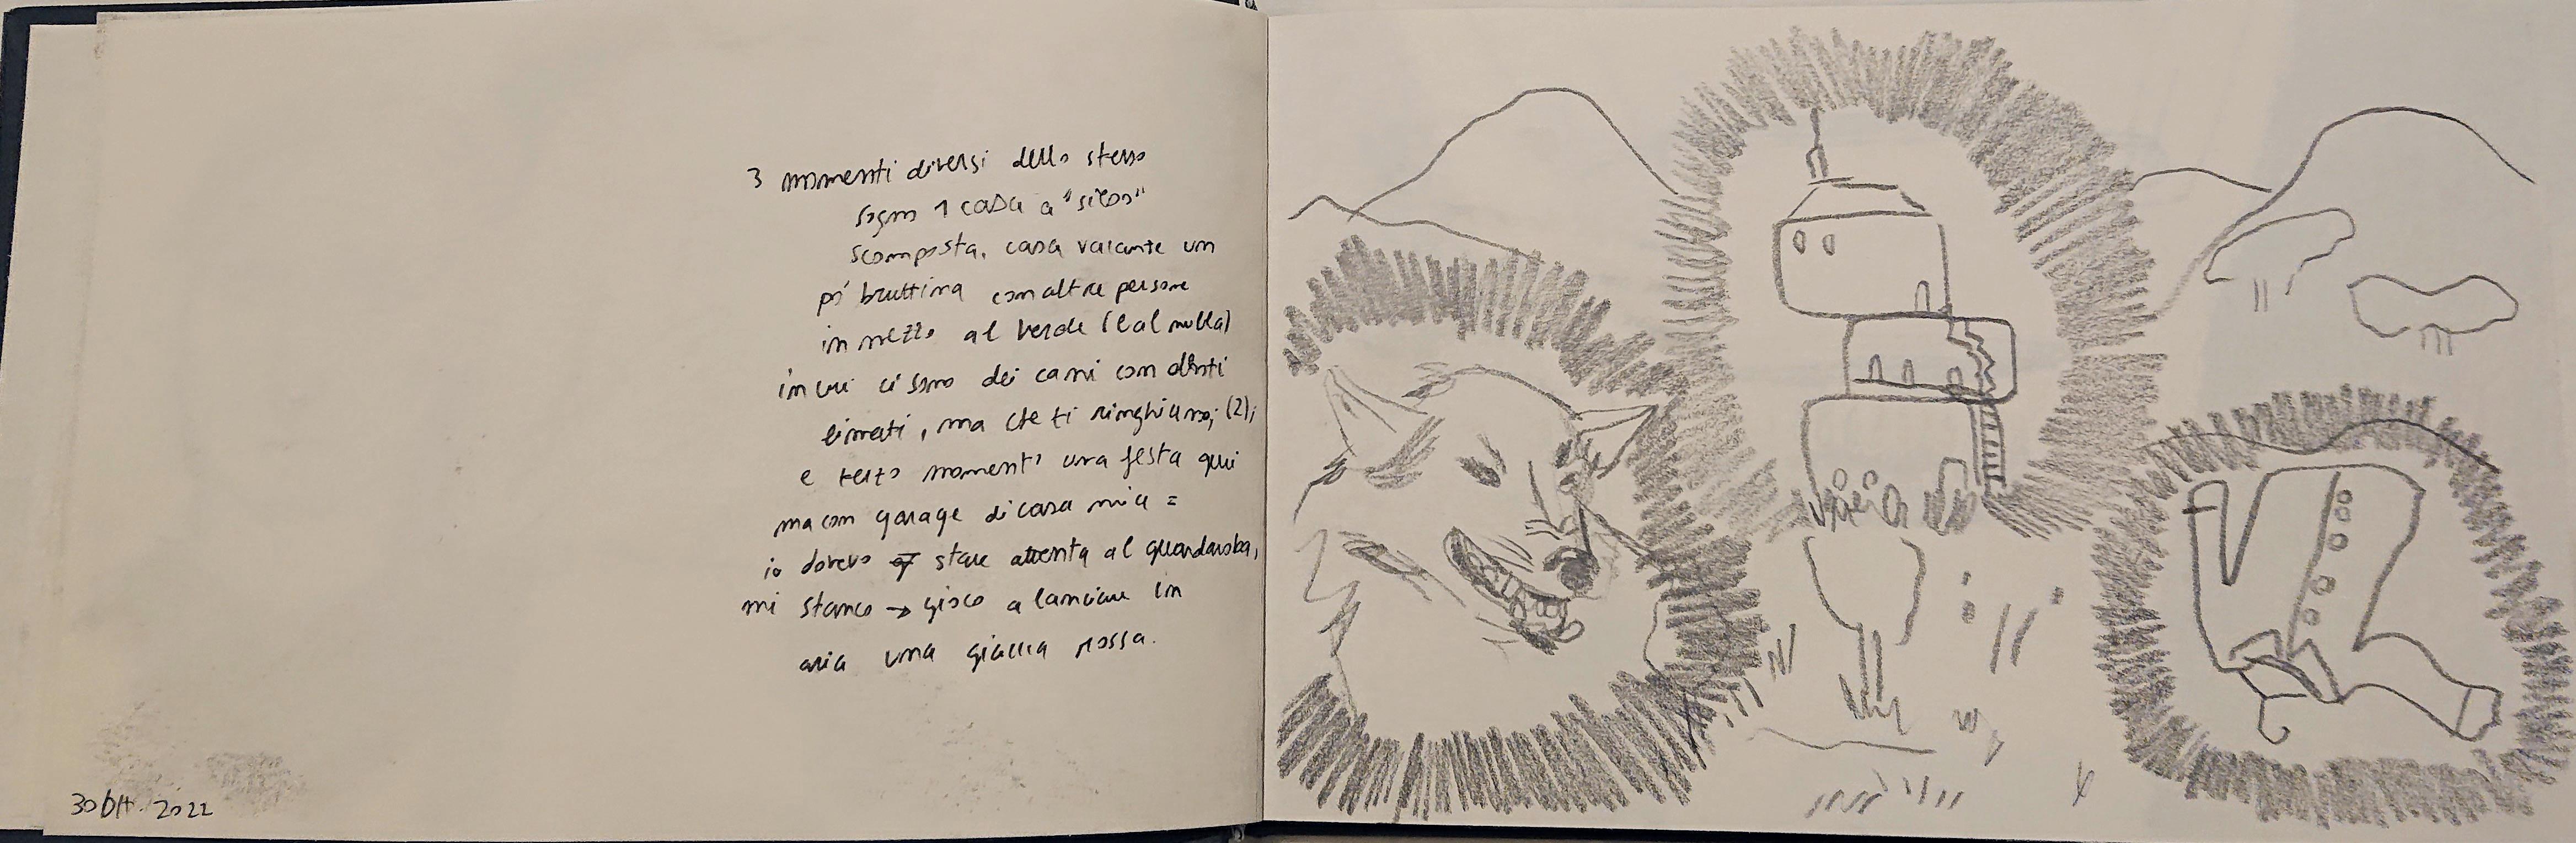 3 momenti diversi dello stesso
sogno 1 casa a "silos"
scomposta, casa vacante un
pó bruttina con altre persone
in mezzo al verde (e al nulla)
in cui ci sono dei cani con denti
limati, ma che ti ringhiano; (2);
e terzo momento una festa qui
ma con garage di casa mia =
io dovevo stare attenta al guardaroba,
mi stanco → gioco a lanciare in
aria una giacca rossa.
30 ott. 2022